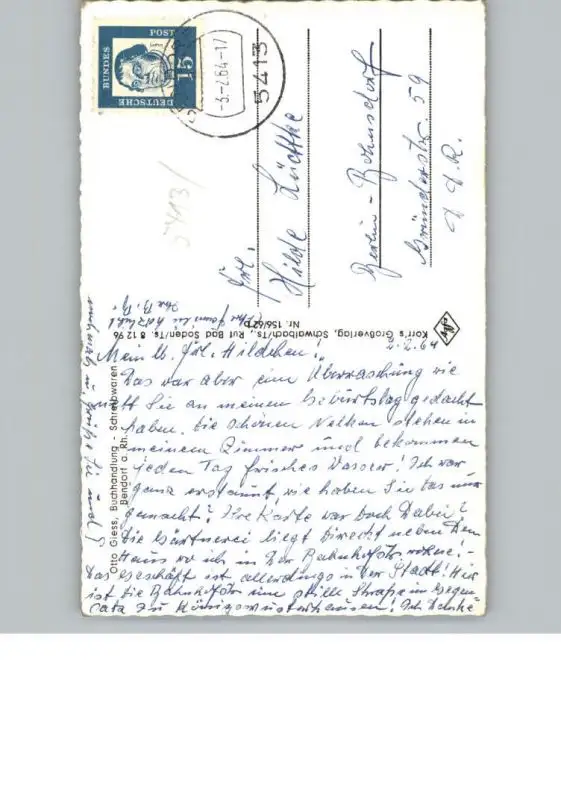 BUNDES
POST
DEUTSCHE
15
-3.-2.64-17
5413
5413/
Frl.
Hilde Lüdtke
Berlin-Bohnsdorf
Gründerstr. 59
D.D.R.
Korr's Großverlag, Schwalbach/Ts., Ruf Bad Soden/Ts. 8 12 96
Nr. 156/62
Otto Giess, Buchhandlung - Schreibwaren
Bendorf a. Rh.
Mein lb. Frl. Hildchen!
Das war aber eine Überraschung wie
mitt Sie an meinen Geburtstag gedacht
haben. Die schönen Nelken stehen in
meinem Zimmer und bekommen
jeden Tag frisches Wasser! Ich war
ganz erstaunt, wie haben Sie das nur
gemacht? Ihre Karte war doch dabei?
Die Gärtnerei liegt direckt neben dem
Haus wo ich in der Bahnhofstr. wohne.-
Das Geschäft ist allerdings in der Stadt! Hier
ist die Bahnhofstr eine stille Straße im Gegen-
satz zu Königswusterhausen! Ich danke